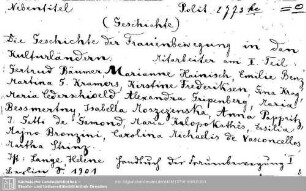 Nebentitel Polit. 1775 ko = 0
(Geschichte)
Die Geschichte der Frauenbewegung in den
Kulturländern. Mitarbeiter am I. Teil:
Gertrud Bäumer, Marianne Hainisch, Emilie Benz,
Martina G. Kramers, Kirstine Frederiksen, Gina Krog,
Maria Cederschiöld, Alexandra Gripenberg, Maria
Bessmertny, Isabella Moszczenska, Anna Pappritz,
J. de Gamond, Maria Kalopothakes, Ersilia
Majno Bronzini, Carolina Michaelis de Vasconcellos,
Martha Strinz
Lange, Helene Handbuch der Frauenbewegung I
Berlin 1901